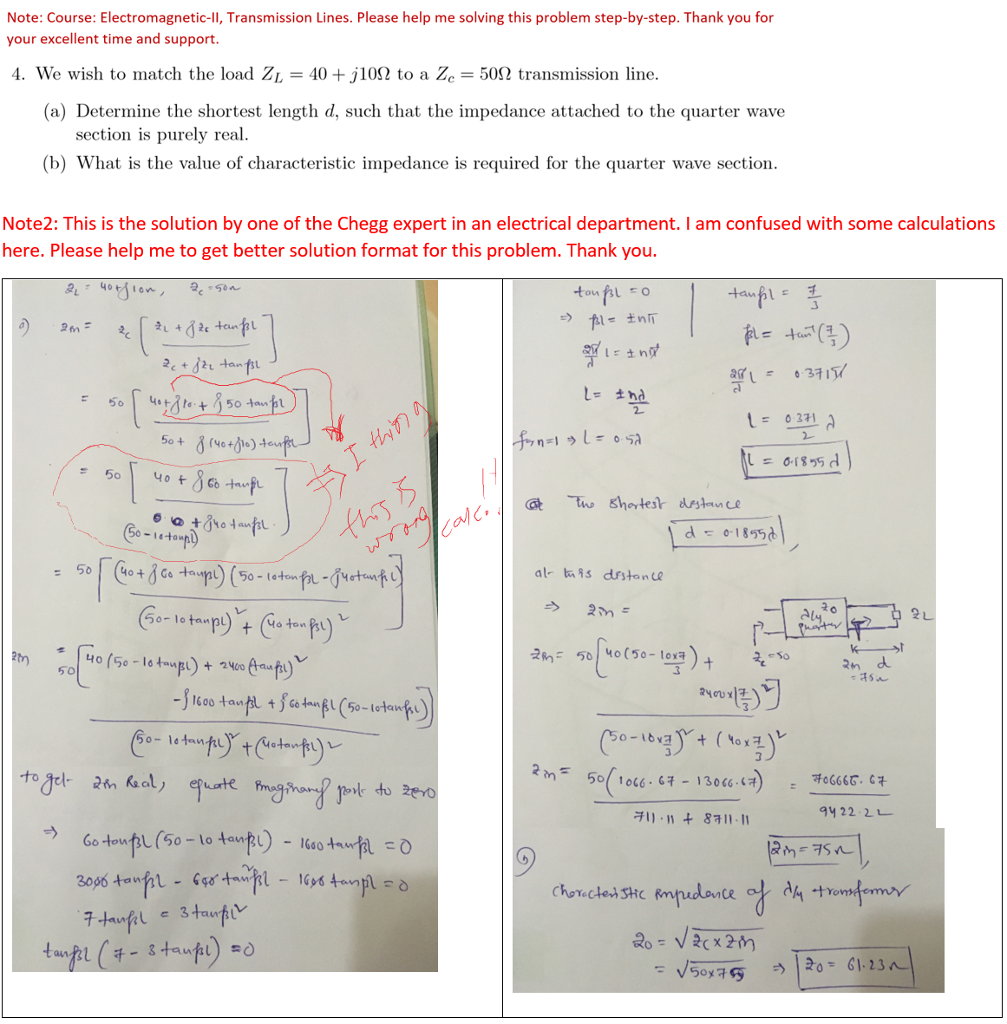 Note: Course: Electromagnetic-II, Transmission Lines. Please help me solving this problem step-by-step. Thank you for
your excellent time and support.
4. We wish to match the load Z_L = 40 + j10Ω to a Z_c = 50Ω transmission line.
(a) Determine the shortest length d, such that the impedance attached to the quarter wave
section is purely real.
(b) What is the value of characteristic impedance is required for the quarter wave section.
Note2: This is the solution by one of the Chegg expert in an electrical department. I am confused with some calculations
here. Please help me to get better solution format for this problem. Thank you.
Z_L = 40+j10Ω, Z_c = 50Ω
a) Zin = Z_c [Z_L + jZ_c tanβL]
Z_c + jZ_L tanβL
= 50 [40+j10+j50 tanβL]
50 + j(40+j10) tanβL
= 50 [40 + j60 tanβL]
(50-10tanβL) + j40tanβL
I thing
this is
wrong calc.
= 50 [(40+j60 tanβL)(50-10tanβL-j40tanβL)]
(50-10tanβL)² + (40tanβL)²
Zin = 50 [40(50-10tanβL) + 2400(tanβL)²
-j1600 tanβL + j60tanβL(50-10tanβL)]
(50-10tanβL)² + (40tanβL)²
to get Zin Real, equate imaginary part to zero
⇒ 60tanβL(50-10tanβL) - 1600tanβL = 0
3000 tanβL - 600 tan²βL - 1600 tanβL = 0
7tanβL = 3tanβL²
tanβL (7 - 3tanβL) = 0
tanβL = 0
⇒ βL = ±nπ
2π/λ L = ±nπ
L = ±nλ/2
for n=1 ⇒ L = 0.5λ
tanβL = 7/3
βL = tan⁻¹(7/3)
2π/λ L = 0.371π
L = 0.371/2 λ
L = 0.1855λ
The shortest distance
d = 0.1855λ,
at this distance
⇒ Zin =
λ/4 Z0
quarter
Z_L
Z_c=50
Zin d
=75Ω
Zin = 50[40(50-10x7/3) +
2400x(7/3)²]
(50-10x7/3)² + (40x7/3)²
Zin = 50(1066.67 - 13066.67) = 706666.67
711.11 + 8711.11 9422.22
Zin = 75Ω,
b)
Characteristic impedance of λ/4 transformer
Z0 = √Z_c x Zin
= √50x75 ⇒ Z0 = 61.23Ω